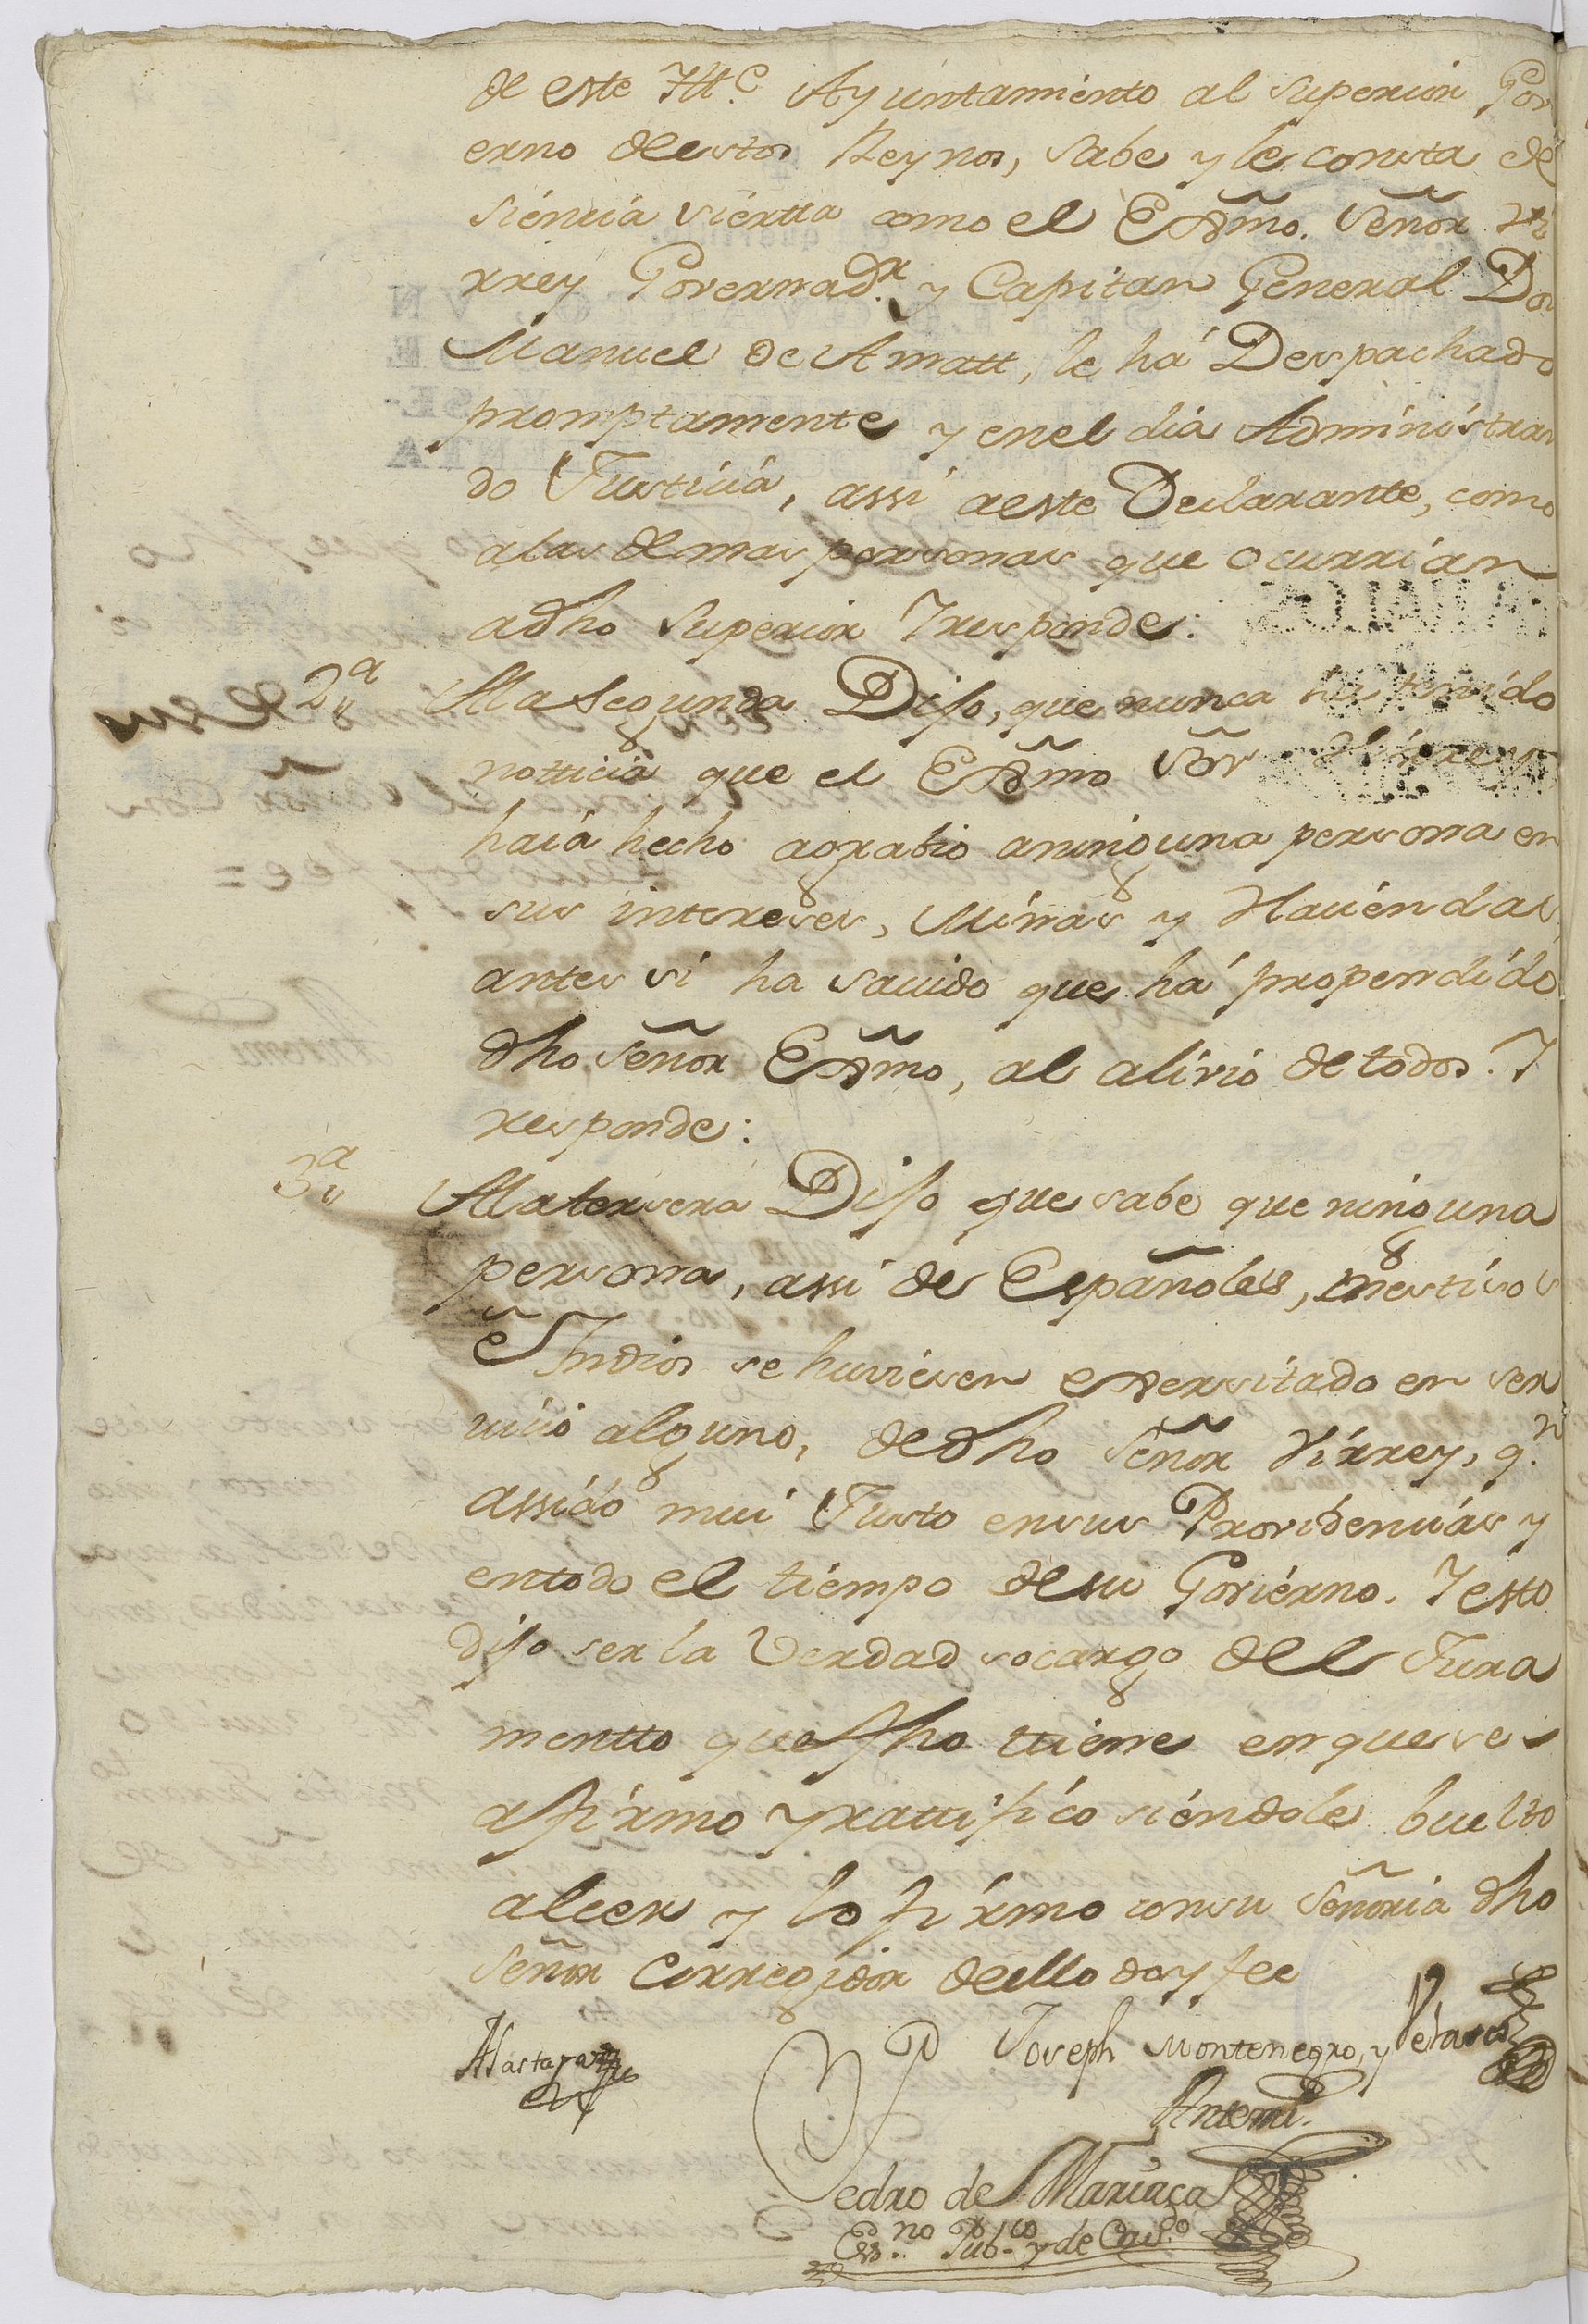 de este Ill.e Ayuntamiento al superior Gov
erno deestos Reynos, sabe y le consta de
siencia siertta como el Exmo. Señor Vi
rrey Governad.r y Capitan General Don
Manuel de Amatt, le há Despachado
promptamente y enel dia Administran
do Justicia, assi aeste Declarante, como
alas demas personas que ocurrian
adho Superior Yresponde:
2a Ala Segunda Dijo, que nunca ha tenido
notticia que el Exmo Sõr Virrey
haia hecho agrabio aninguna persona en
sus intereses, Minas y Haciendas,
antes si ha savido que há propendido
dho Señor Exmo, al alivio de todos. Y
responde:
3a Ala tersera Dijo que sabe que ninguna
persona, assi de Españoles, mestisos
e Yndios se huviesen exersitado en ser
vicio alguno, dedho Señor Virrey, q.n
assido mui Justo ensus Providencias y
entodo el tiempo desu Govierno. Y esto
dijo ser la Verdad socargo del Jura
mentto que fho ttiene enque se
afirmo yrattifico siendole buelto
aleer y lo firmo consu Señoria dho
Señor Corregidor deello doy fee
Joseph Montenegro, y Velasco
Antemi.
Pedro de Mariaca
Ess.no Pub.co y de Cav.do